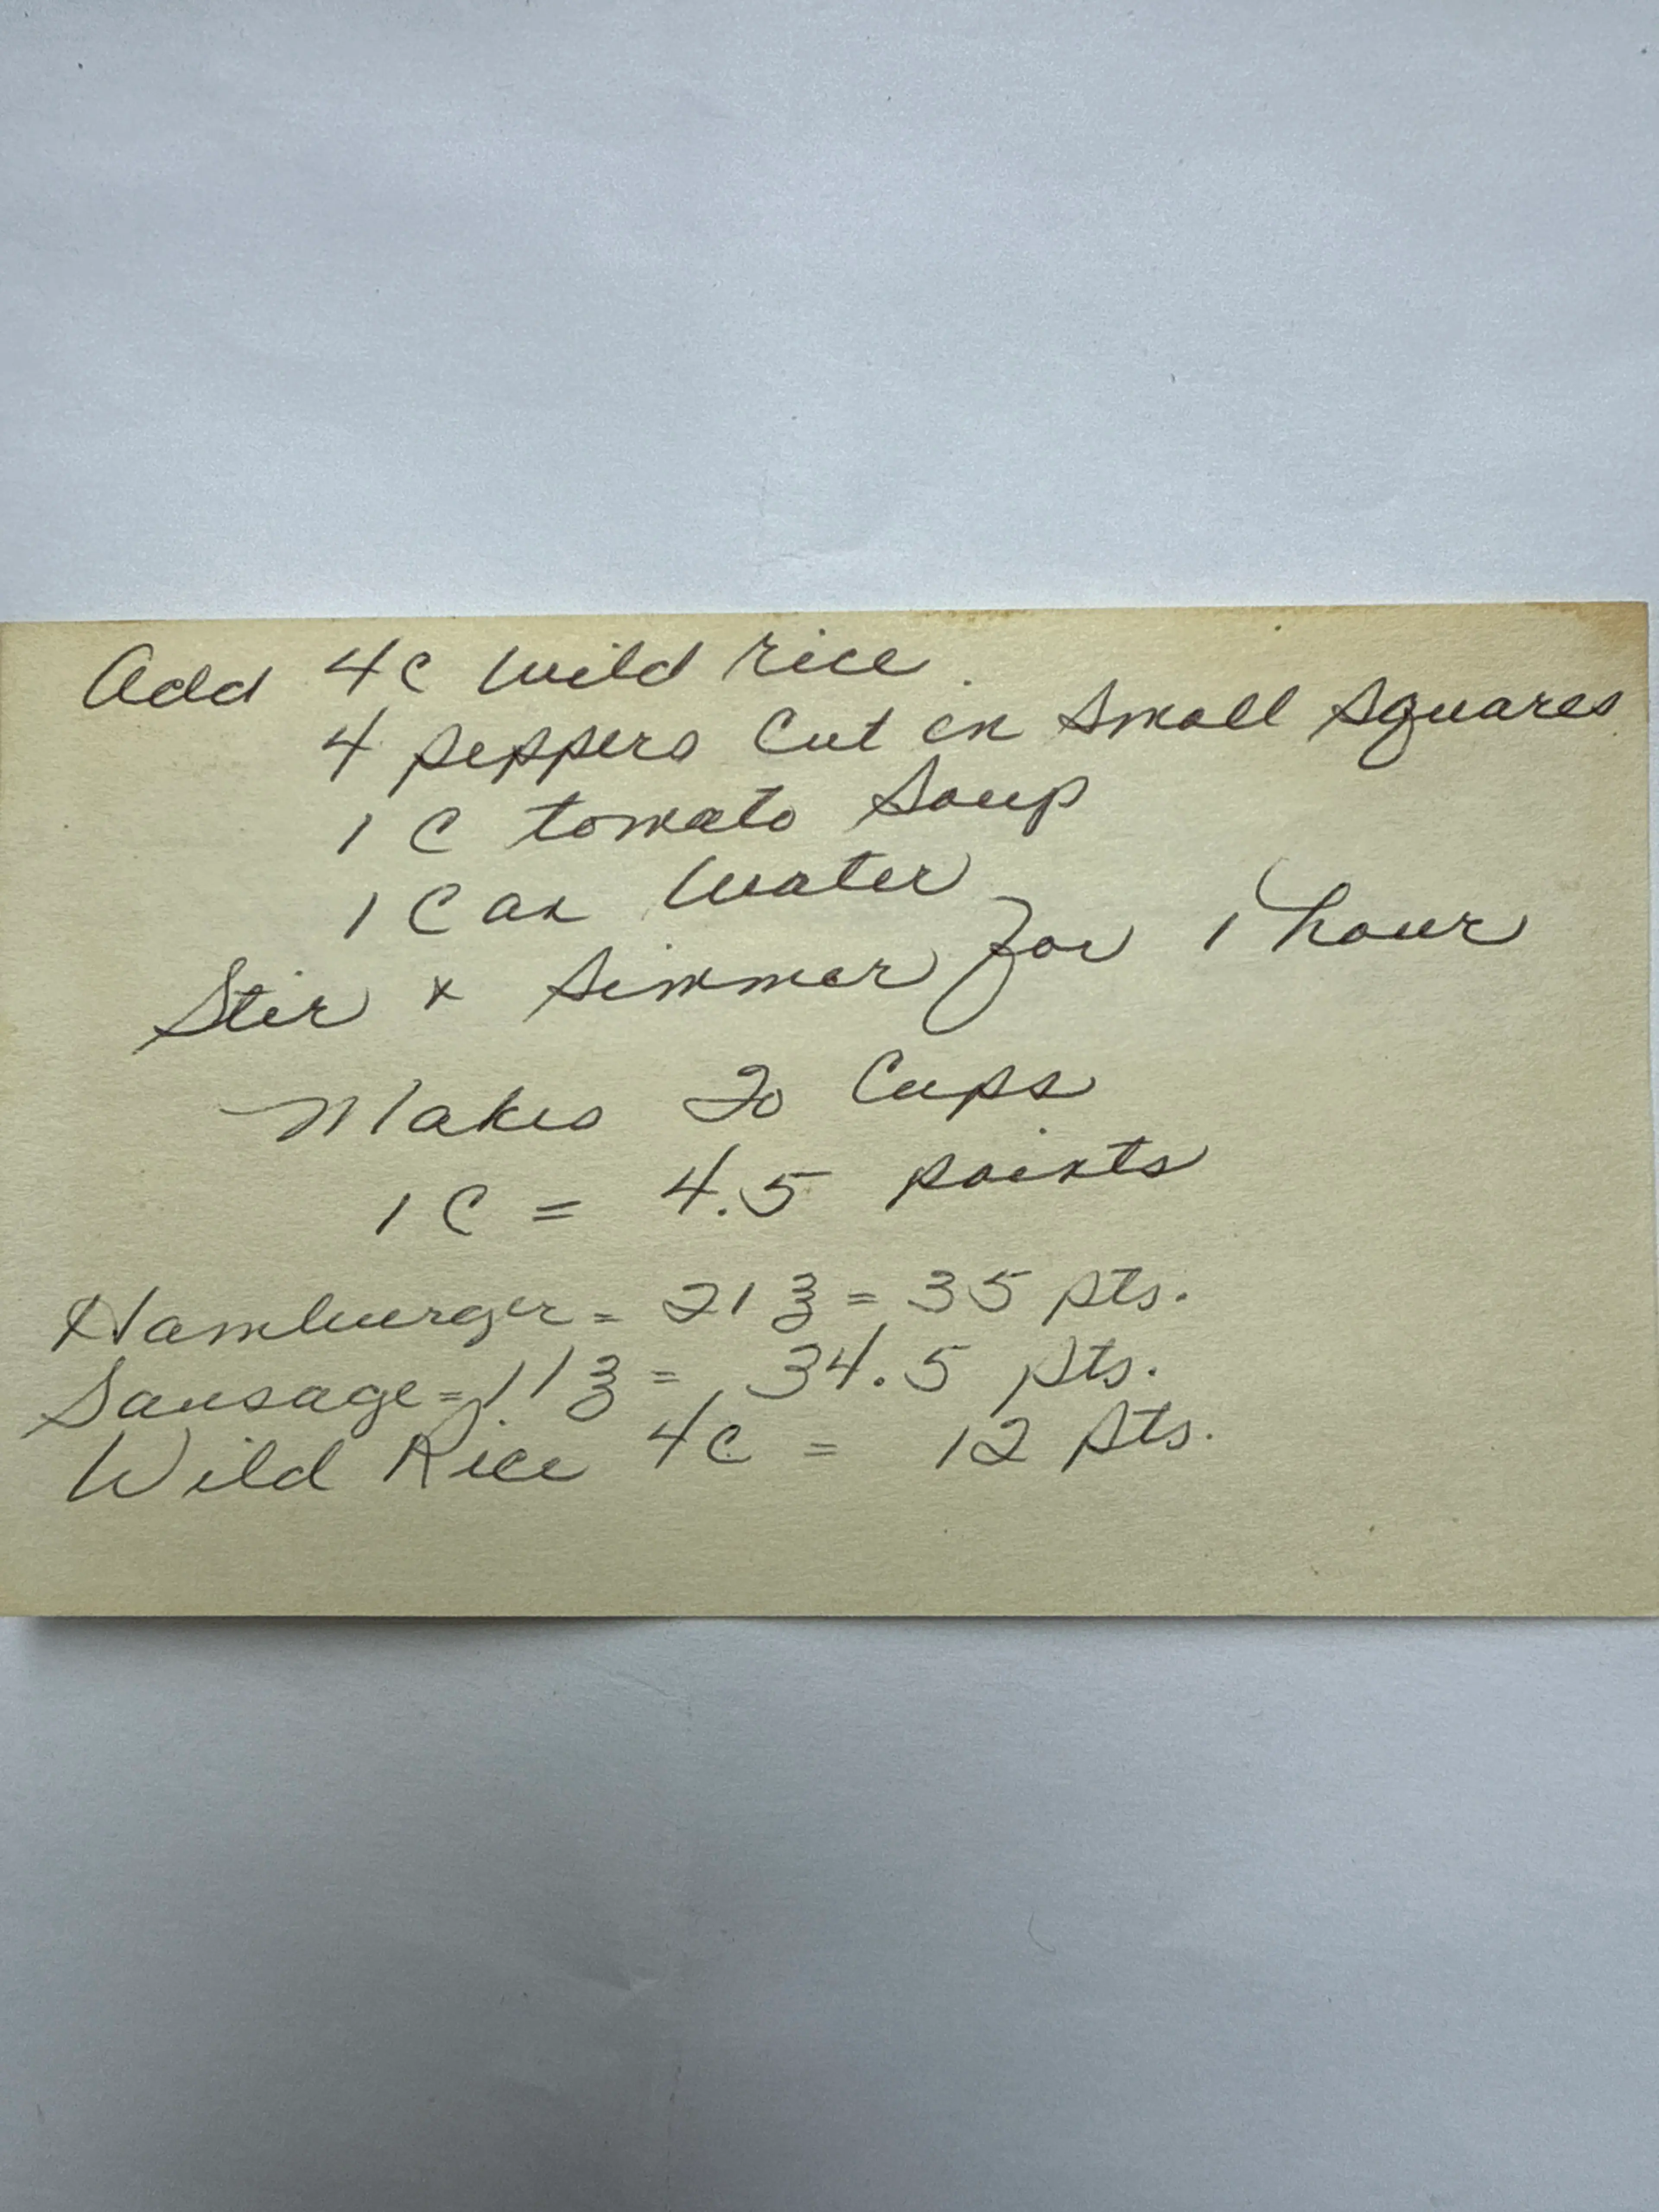 Add 4c Wild rice
4 peppers Cut in Small Squares
1 C tomato Soup
1 Can Water
Stir + Simmer for 1 hour
Makes 20 Cups
1 C = 4.5 points
Hamburger = 21 ℥ = 35 pts.
Sausage = 11 ℥ = 34.5 pts.
Wild Rice 4c = 12 pts.